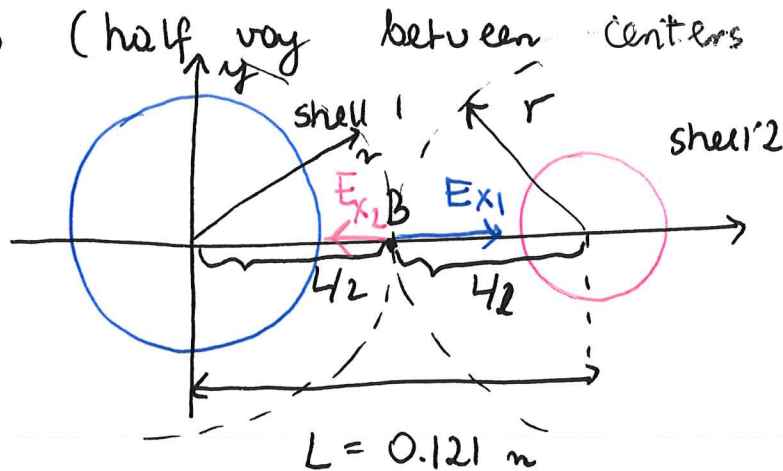 (half way between centers
y
shell 1
r
r
shell 2
Ex2 B Ex1
L/2 L/2
L = 0.121 m